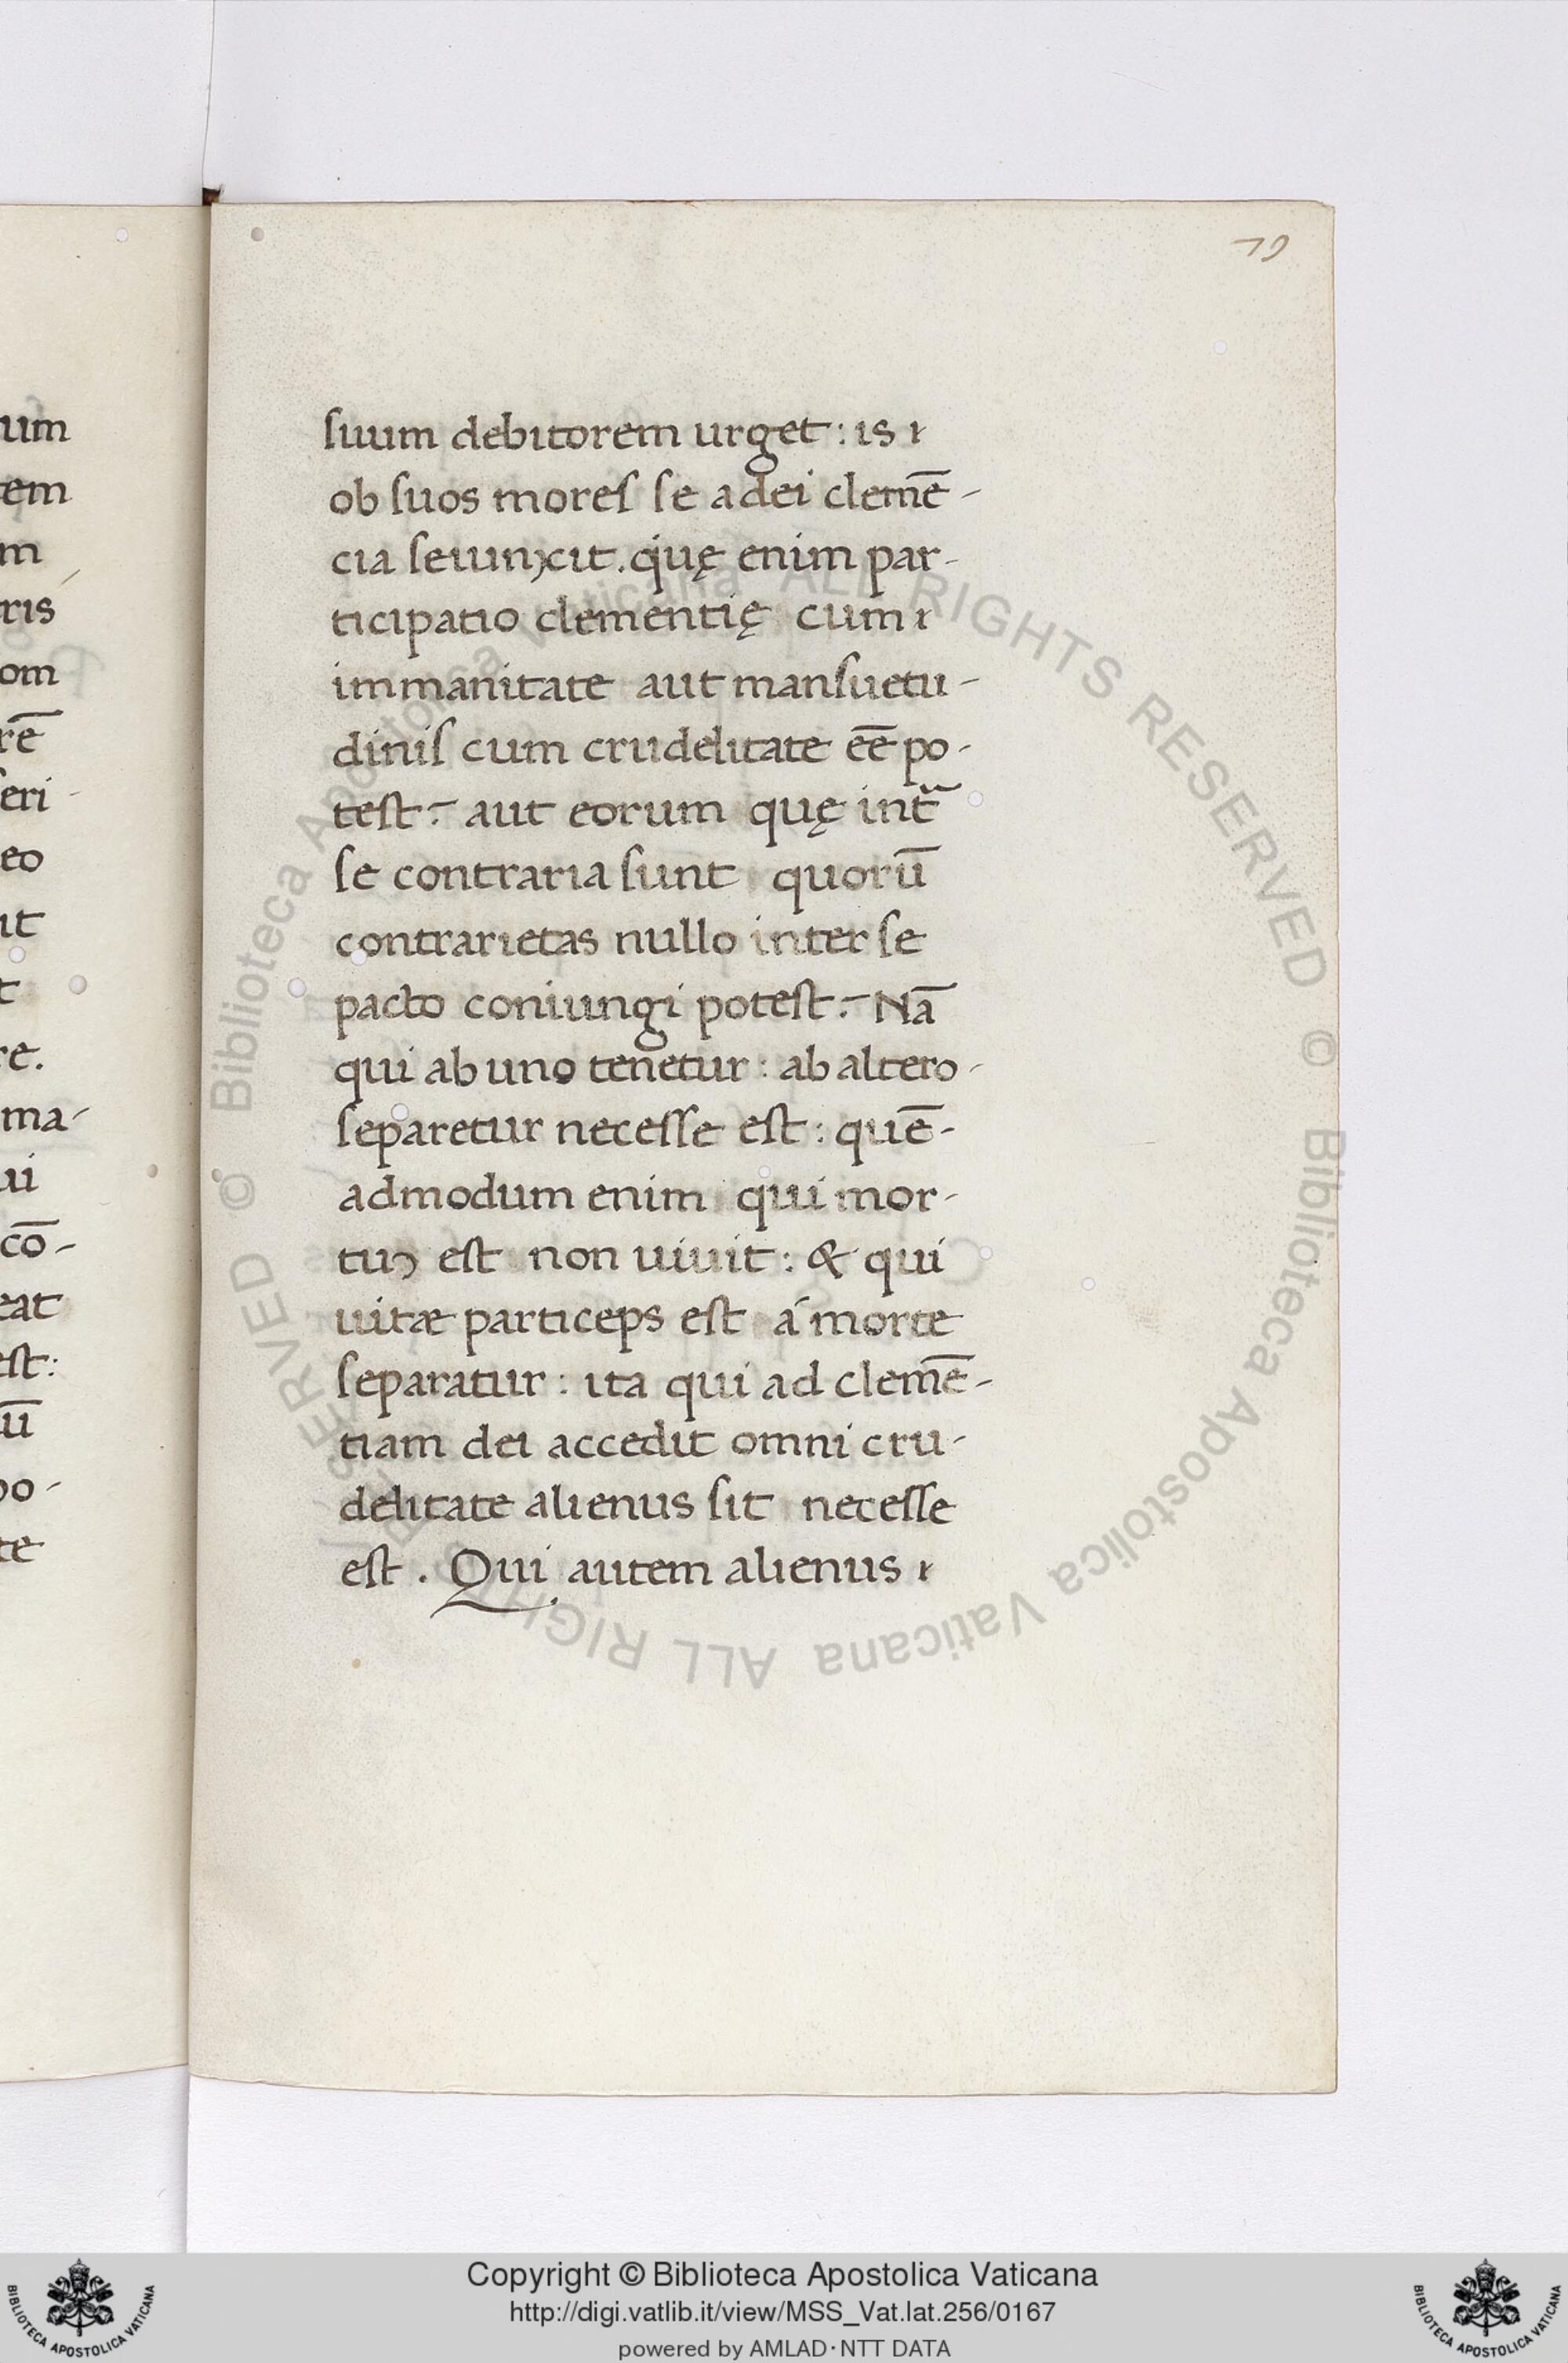 79
ſuum debitorem urget : is
ob ſuos moreſ ſe a dei clemē-
cia ſeiunxcit. quę enim par-
ticipatio clementię cum
immanitate aut manſuetu-
diniſ cum crudelitate ēē po-
teſt: aut eorum quę int̃
ſe contraria ſunt quorū
contrarietas nullo inter ſe
pacto coniungi poteſt: Nā
qui ab uno tenetur : ab altero-
ſeparetur neceſſe eſt : quē-
admodum enim qui mor-
tuꝯ eſt non uiuit : & qui
uitæ particeps eſt á morte
ſeparatur : ita qui ad clemē-
tiam dei accedit omni cru-
delitate alienus ſit neceſſe
eſt . Qui autem alienus
um
em
m
ris
om
rē
ſeri
eo
it
t
re.
ma-
ui
cō-
eat
eſt:
ū
po-
te
© Biblioteca Apostolica Vaticana ALL RIGHTS RESERVED
© Biblioteca Apostolica Vaticana ALL RIGHTS RESERVED
Copyright © Biblioteca Apostolica Vaticana
http://digi.vatlib.it/view/MSS_Vat.lat.256/0167
powered by AMLAD·NTT DATA
BIBLIOTECA APOSTOLICA VATICANA
BIBLIOTECA APOSTOLICA VATICANA